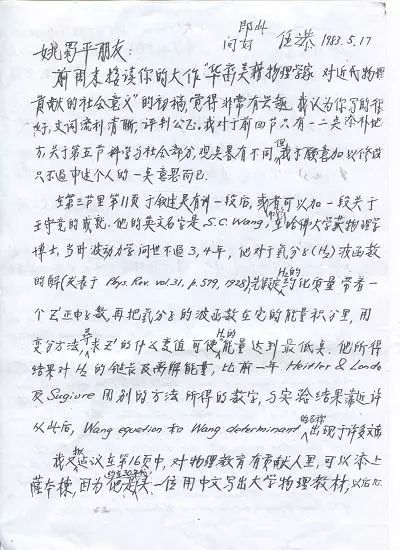 即此
问好 任恭 1983.5.17
姚蜀平朋友:
前周末接读你的大作“华裔美籍物理学家对近代物理
贡献的社会意义”的初稿,觉得非常有兴趣。我认为你写的很
好,文词流利清晰,评判公正。我对于前四节只有一二点添补地
方,关于第五节科学与社会部分,观点略有不同,但我不愿意加以修改
只不过申述个人的一点意思而已.
在第三节里第11页于叙述吴有训一段后,或者可以加一段关于
王守竞的成就. 他的英文名字是 S.C. Wang, 在哈佛大学获物理学
博士,当时波动力学问世不过3,4年, 他对于氢分子(H₂)波函数
的解(发表于 Phys. Rev. vol. 31, p. 579, 1928), 先假设H₂的约化质量带着一
个Z'正电子数,再把氢分子的波函数在它的能量积分里,用
变分方法,寻求Z'的什么数值可使H₂的能量达到最低点. 他所得
结果对H₂的键长及离解能量,比前一年 Heitler & London
及 Sugiure 用别的方法所得的数字,与实验结果靠近许
从此后, Wang equation 和 Wang determinant 的名称出现于许多文献
我又拟建议在第16页中,对物理教育有贡献人里,可以添上
萨本栋,因为他是第一位用中文写出大学物理教材,以后